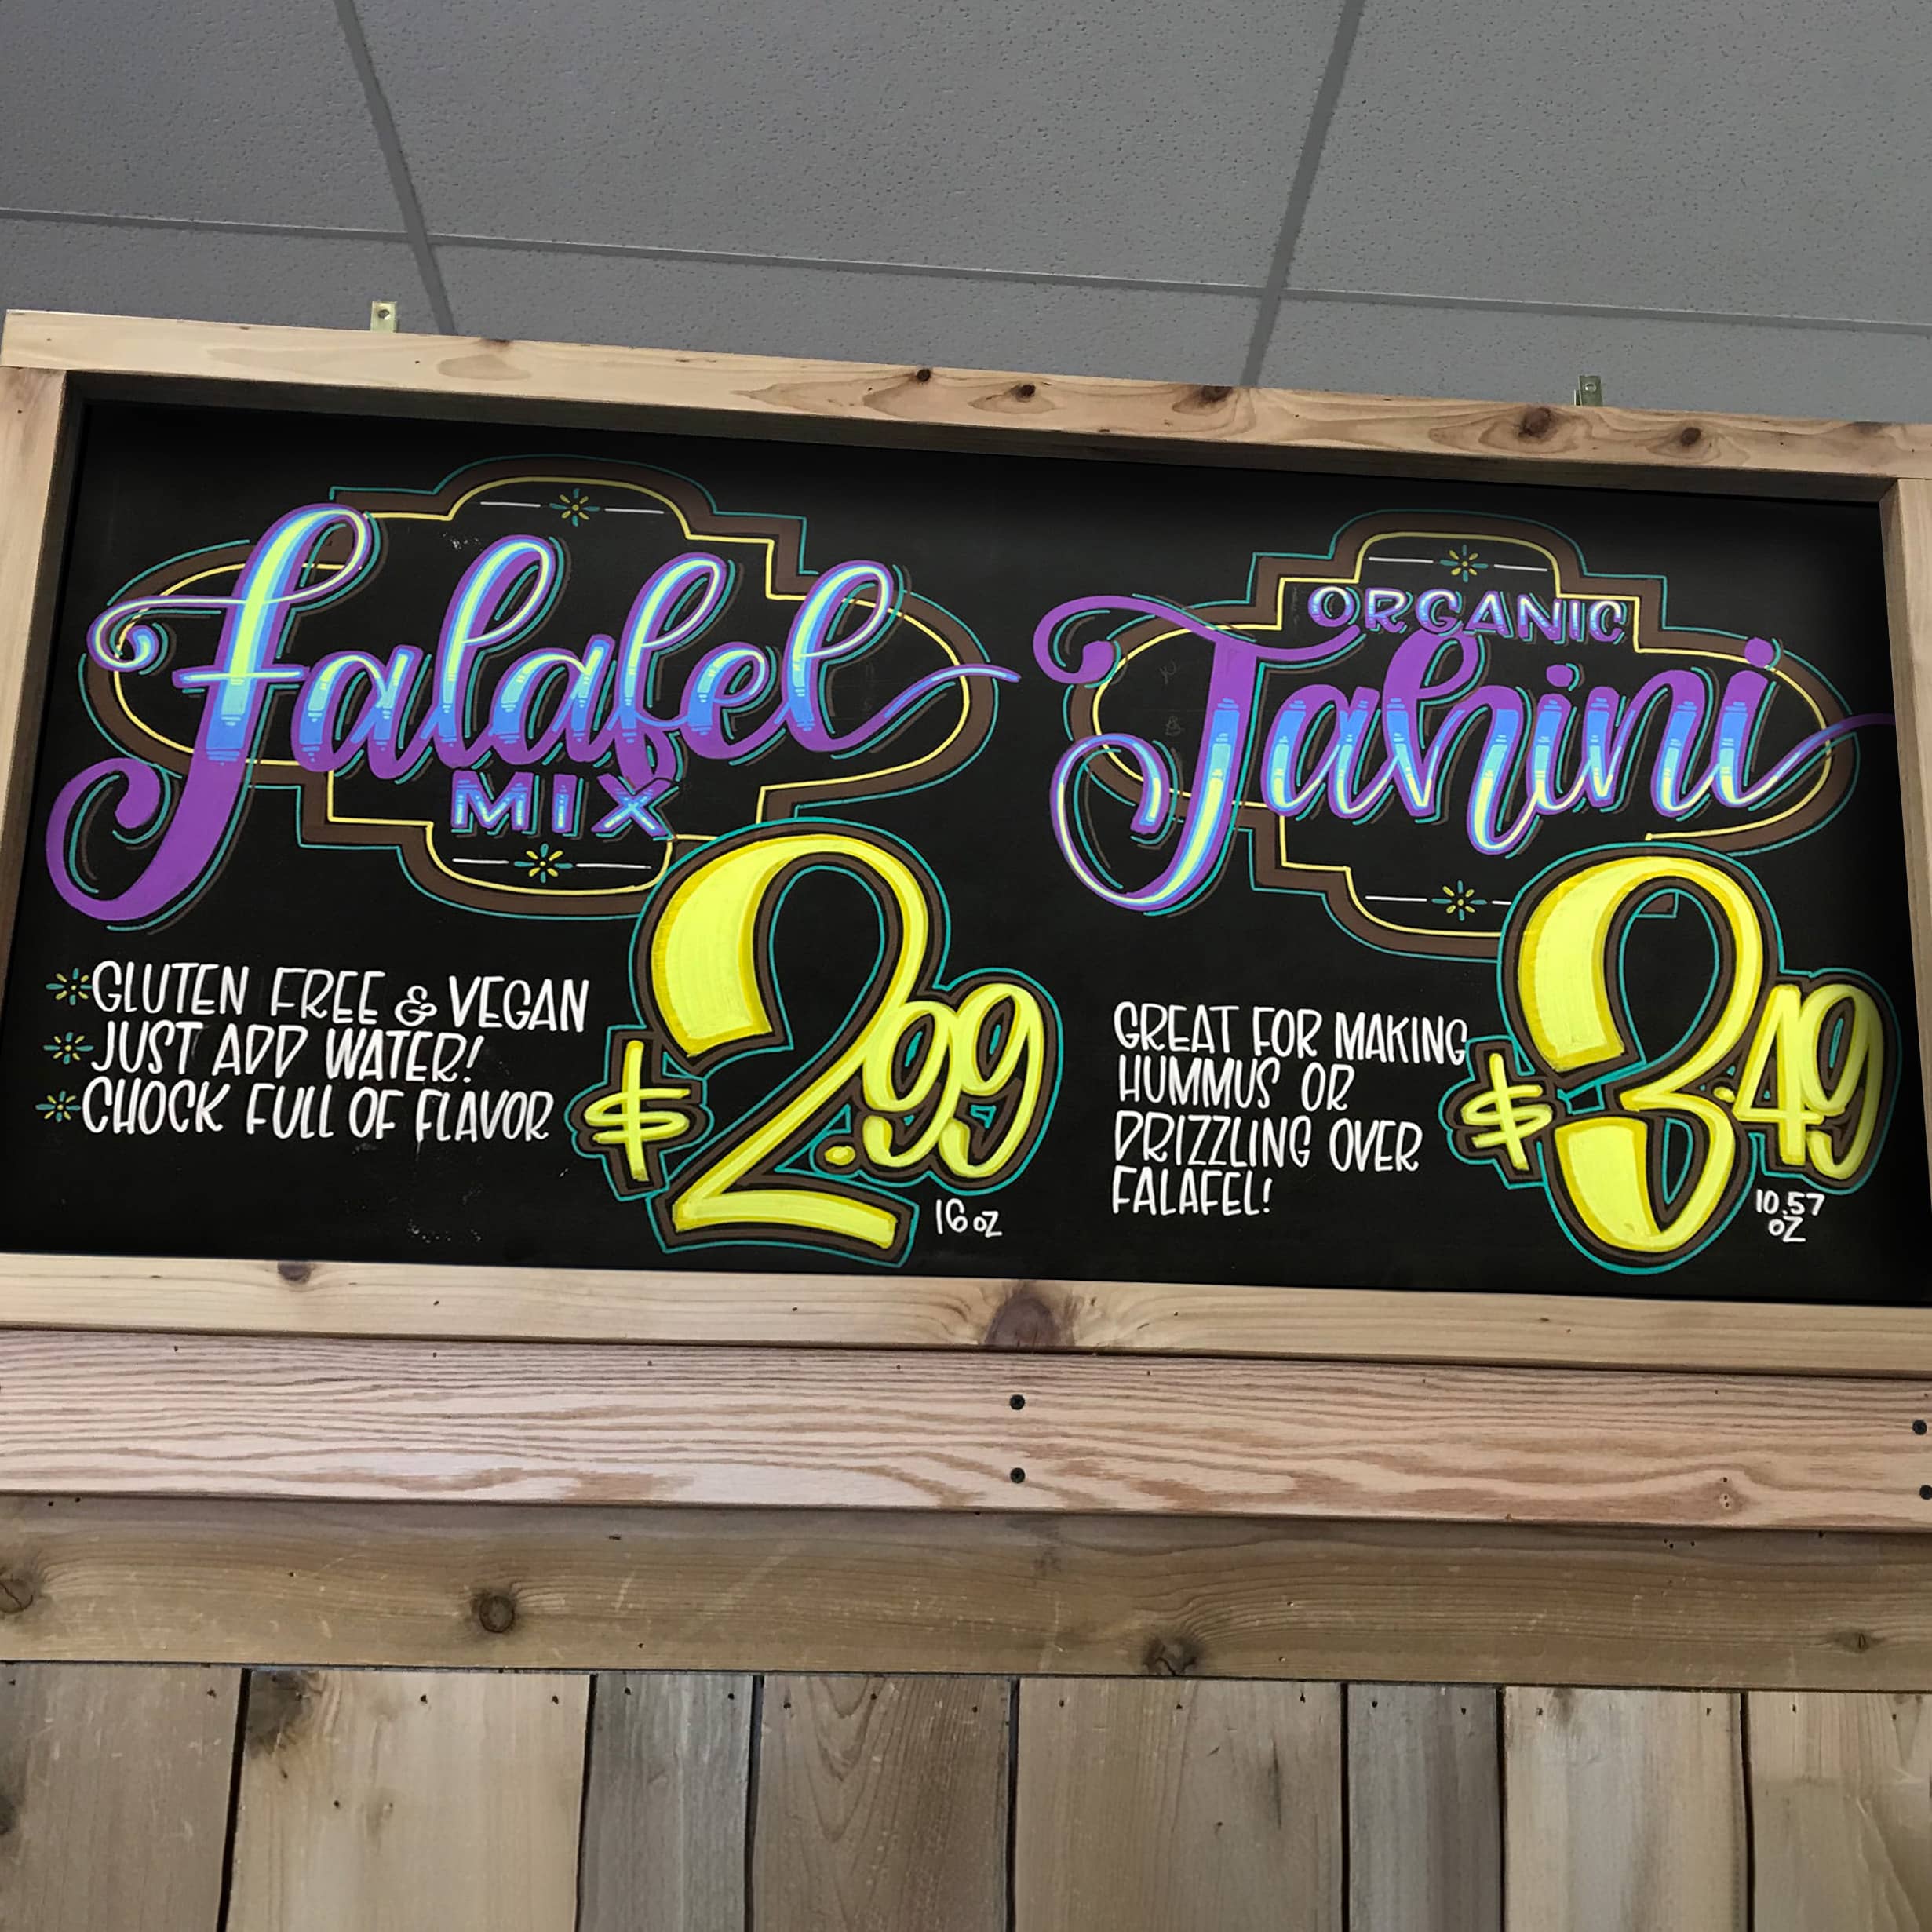 Falafel
MIX
GLUTEN FREE & VEGAN
JUST ADD WATER!
CHOCK FULL OF FLAVOR
$2.99
16 oz
ORGANIC
Tahini
GREAT FOR MAKING
HUMMUS OR
DRIZZLING OVER
FALAFEL!
$3.49
10.57
oz